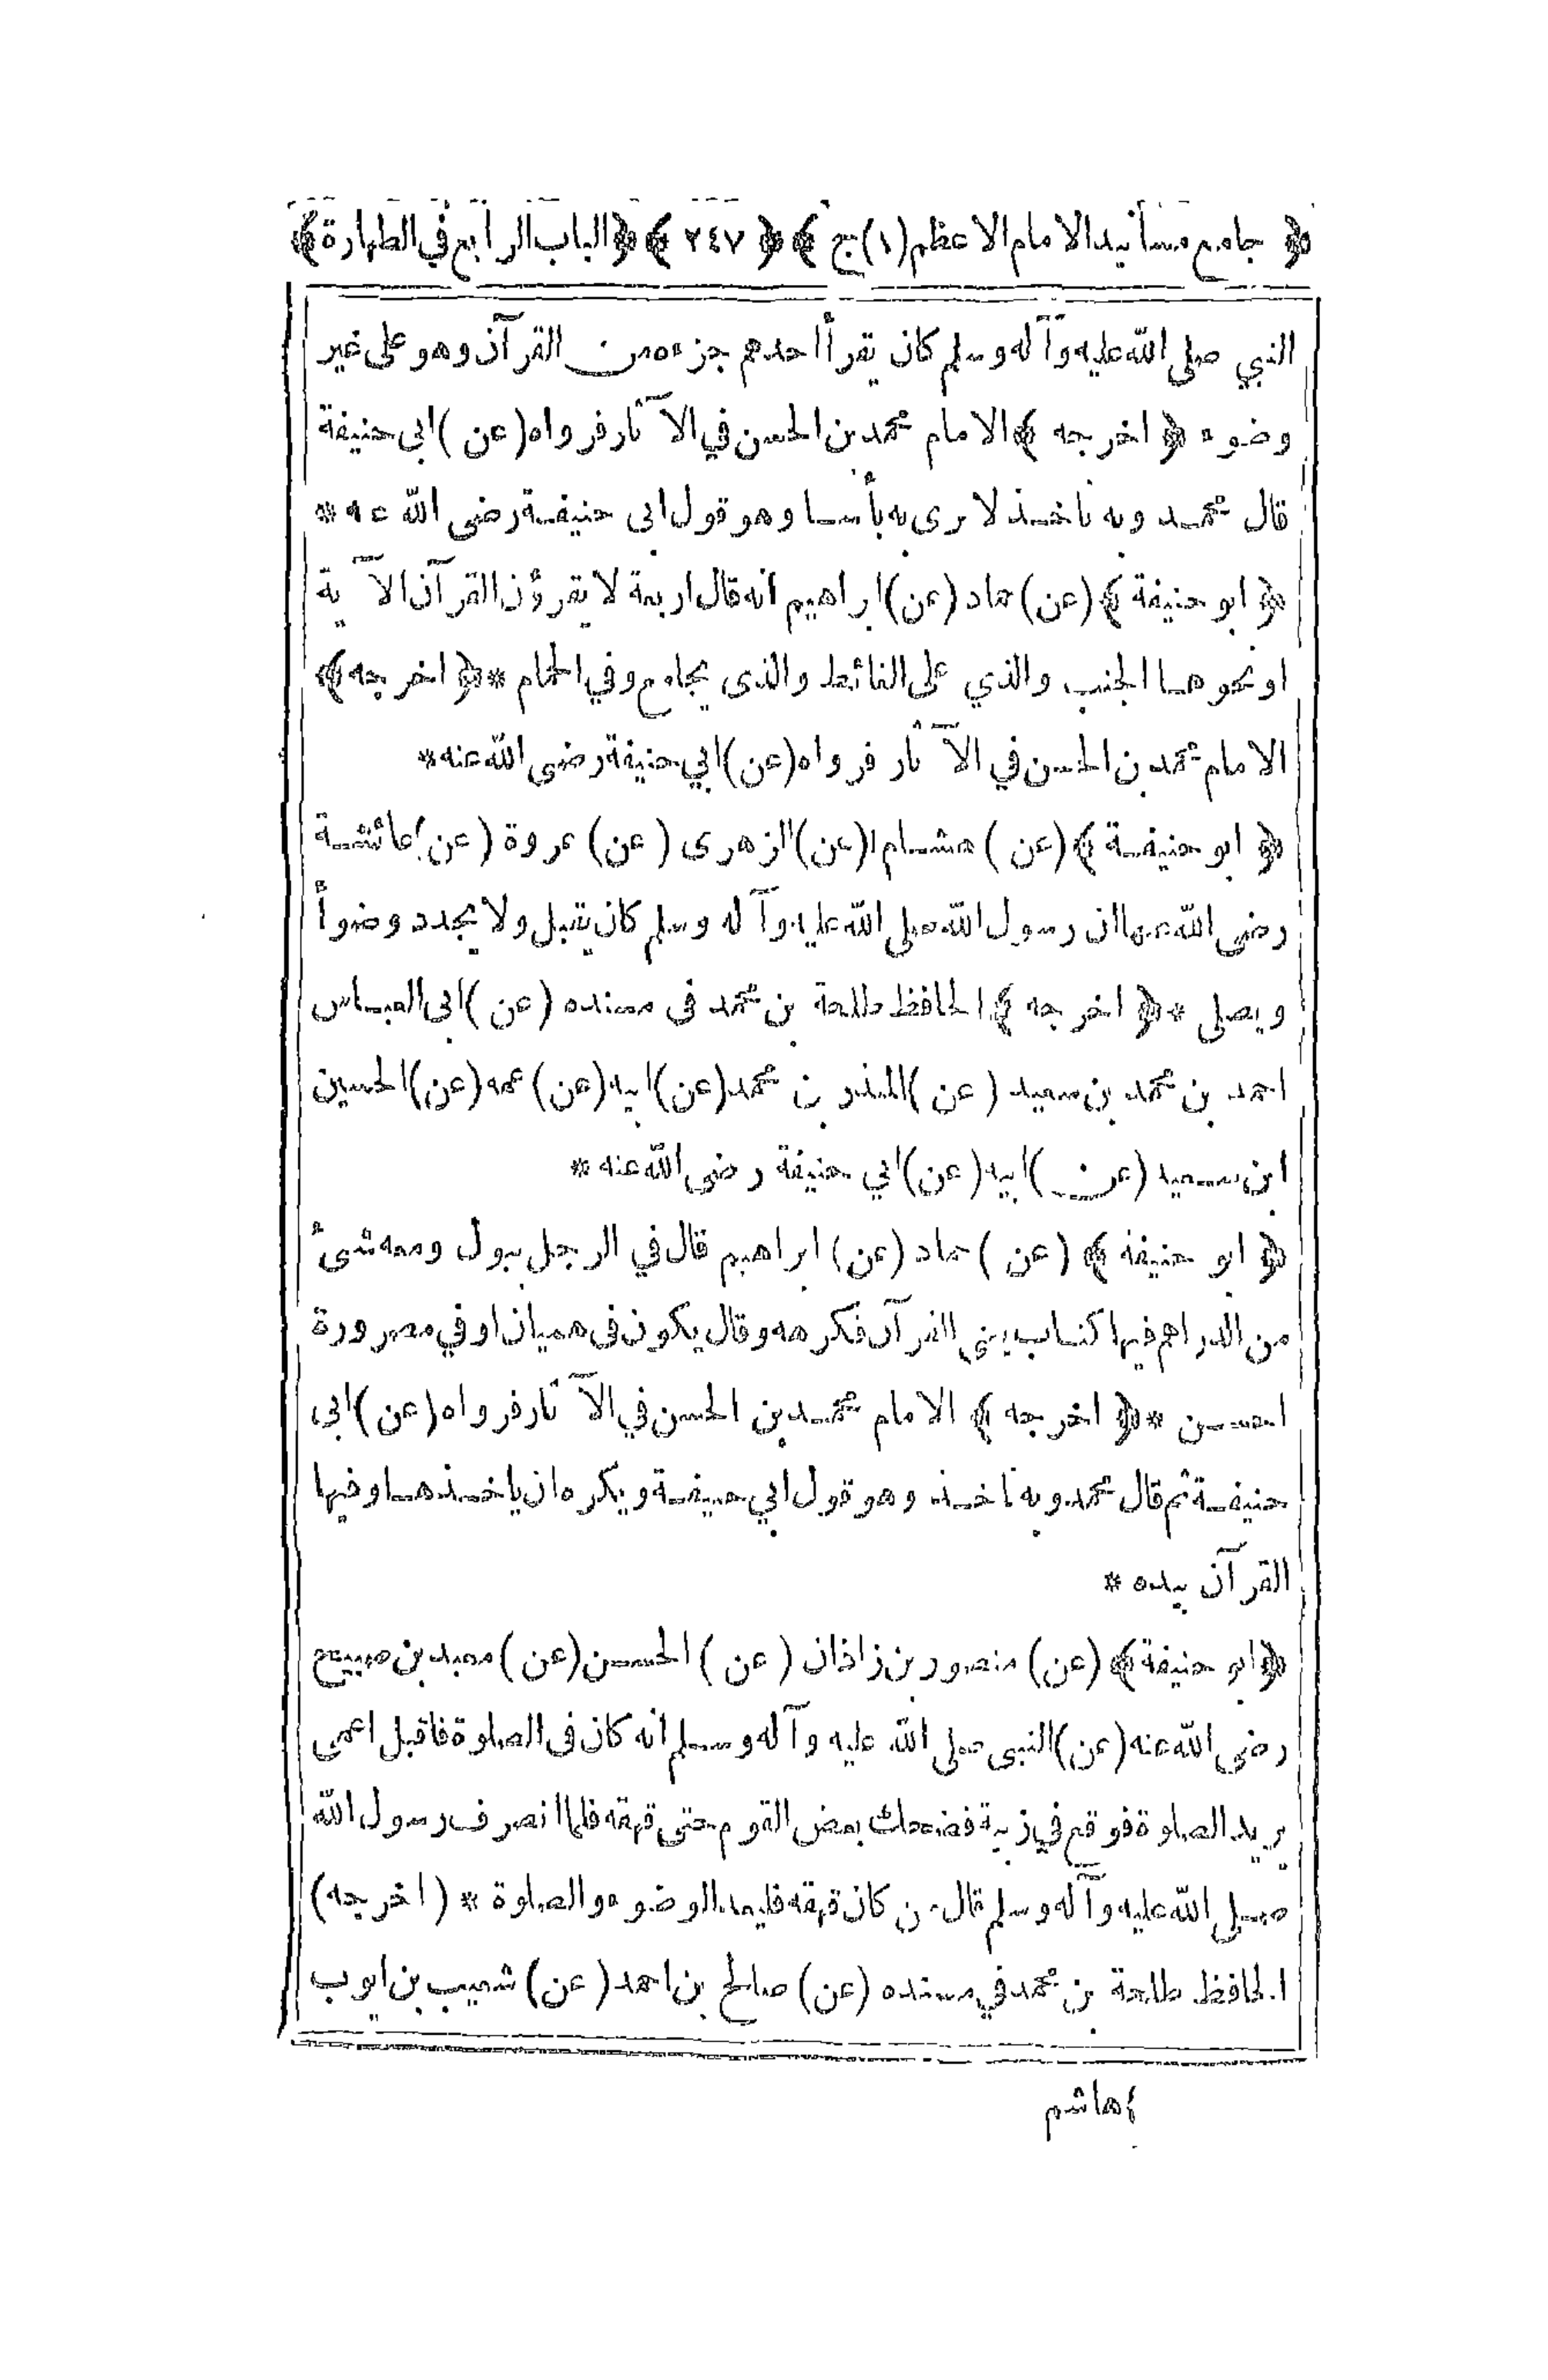 ﴿ جامع مسانيد الامام الاعظم (١) ج ﴾ ﴿ ٢٤٧ ﴾ ﴿ الباب الرابع في الطهارة ﴾
النبي صلى الله عليه وآله وسلم كان يقرأ احدهم جزء من القرآن وهو على غير
وضوء ﴿ اخرجه ﴾ الامام محمد بن الحسن في الآثار فرواه (عن) ابى حنيفة
قال محمد وبه ناخذ لا نرى به بأسا وهو قول ابى حنيفة رضى الله عنه *
﴿ ابو حنيفة ﴾ (عن) حماد (عن) ابراهيم انه قال اربعة لا يقرؤن القرآن الا آية
او نحوها الجنب والذي على الغائط والذى يجامع وفي الحمام * ﴿ اخرجه ﴾
الامام محمد بن الحسن في الآثار فرواه (عن) ابي حنيفة رضى الله عنه *
﴿ ابو حنيفة ﴾ (عن) هشام١ (عن) الزهرى (عن) عروة (عن) عائشة
رضى الله عنها ان رسول الله صلى الله عليه وآله وسلم كان يقبل ولا يجدد وضوأ
ويصلى * ﴿ اخرجه ﴾ الحافظ طلحة بن محمد فى مسنده (عن) ابى العباس
احمد بن محمد بن سعيد (عن) المنذر بن محمد (عن) ابيه (عن) عمه (عن) الحسين
ابن سعيد (عن) ابيه (عن) ابي حنيفة رضى الله عنه *
﴿ ابو حنيفة ﴾ (عن) حماد (عن) ابراهيم قال في الرجل يبول ومعه شئ
من الدراهم فيها كتاب يعني القرآن فكرهه وقال يكون فى هميان او في مصرورة
احسن * ﴿ اخرجه ﴾ الامام محمد بن الحسن في الآثار فرواه (عن) ابى
حنيفة ثم قال محمد وبه ناخذ وهو قول ابي حنيفة ويكره ان ياخذها وفيها
القرآن بيده *
﴿ ابو حنيفة ﴾ (عن) منصور بن زاذان (عن) الحسن (عن) معبد بن صبيح
رضى الله عنه (عن) النبى صلى الله عليه وآله وسلم انه كان فى الصلوة فاقبل اعمى
يريد الصلوة فوقع في زبية فضحك بعض القوم حتى قهقه فلما انصرف رسول الله
صلى الله عليه وآله وسلم قال من كان قهقه فليعد الوضوء والصلوة * (اخرجه)
الحافظ طلحة بن محمد في مسنده (عن) صالح بن احمد (عن) شعيب بن ايوب
هاشم